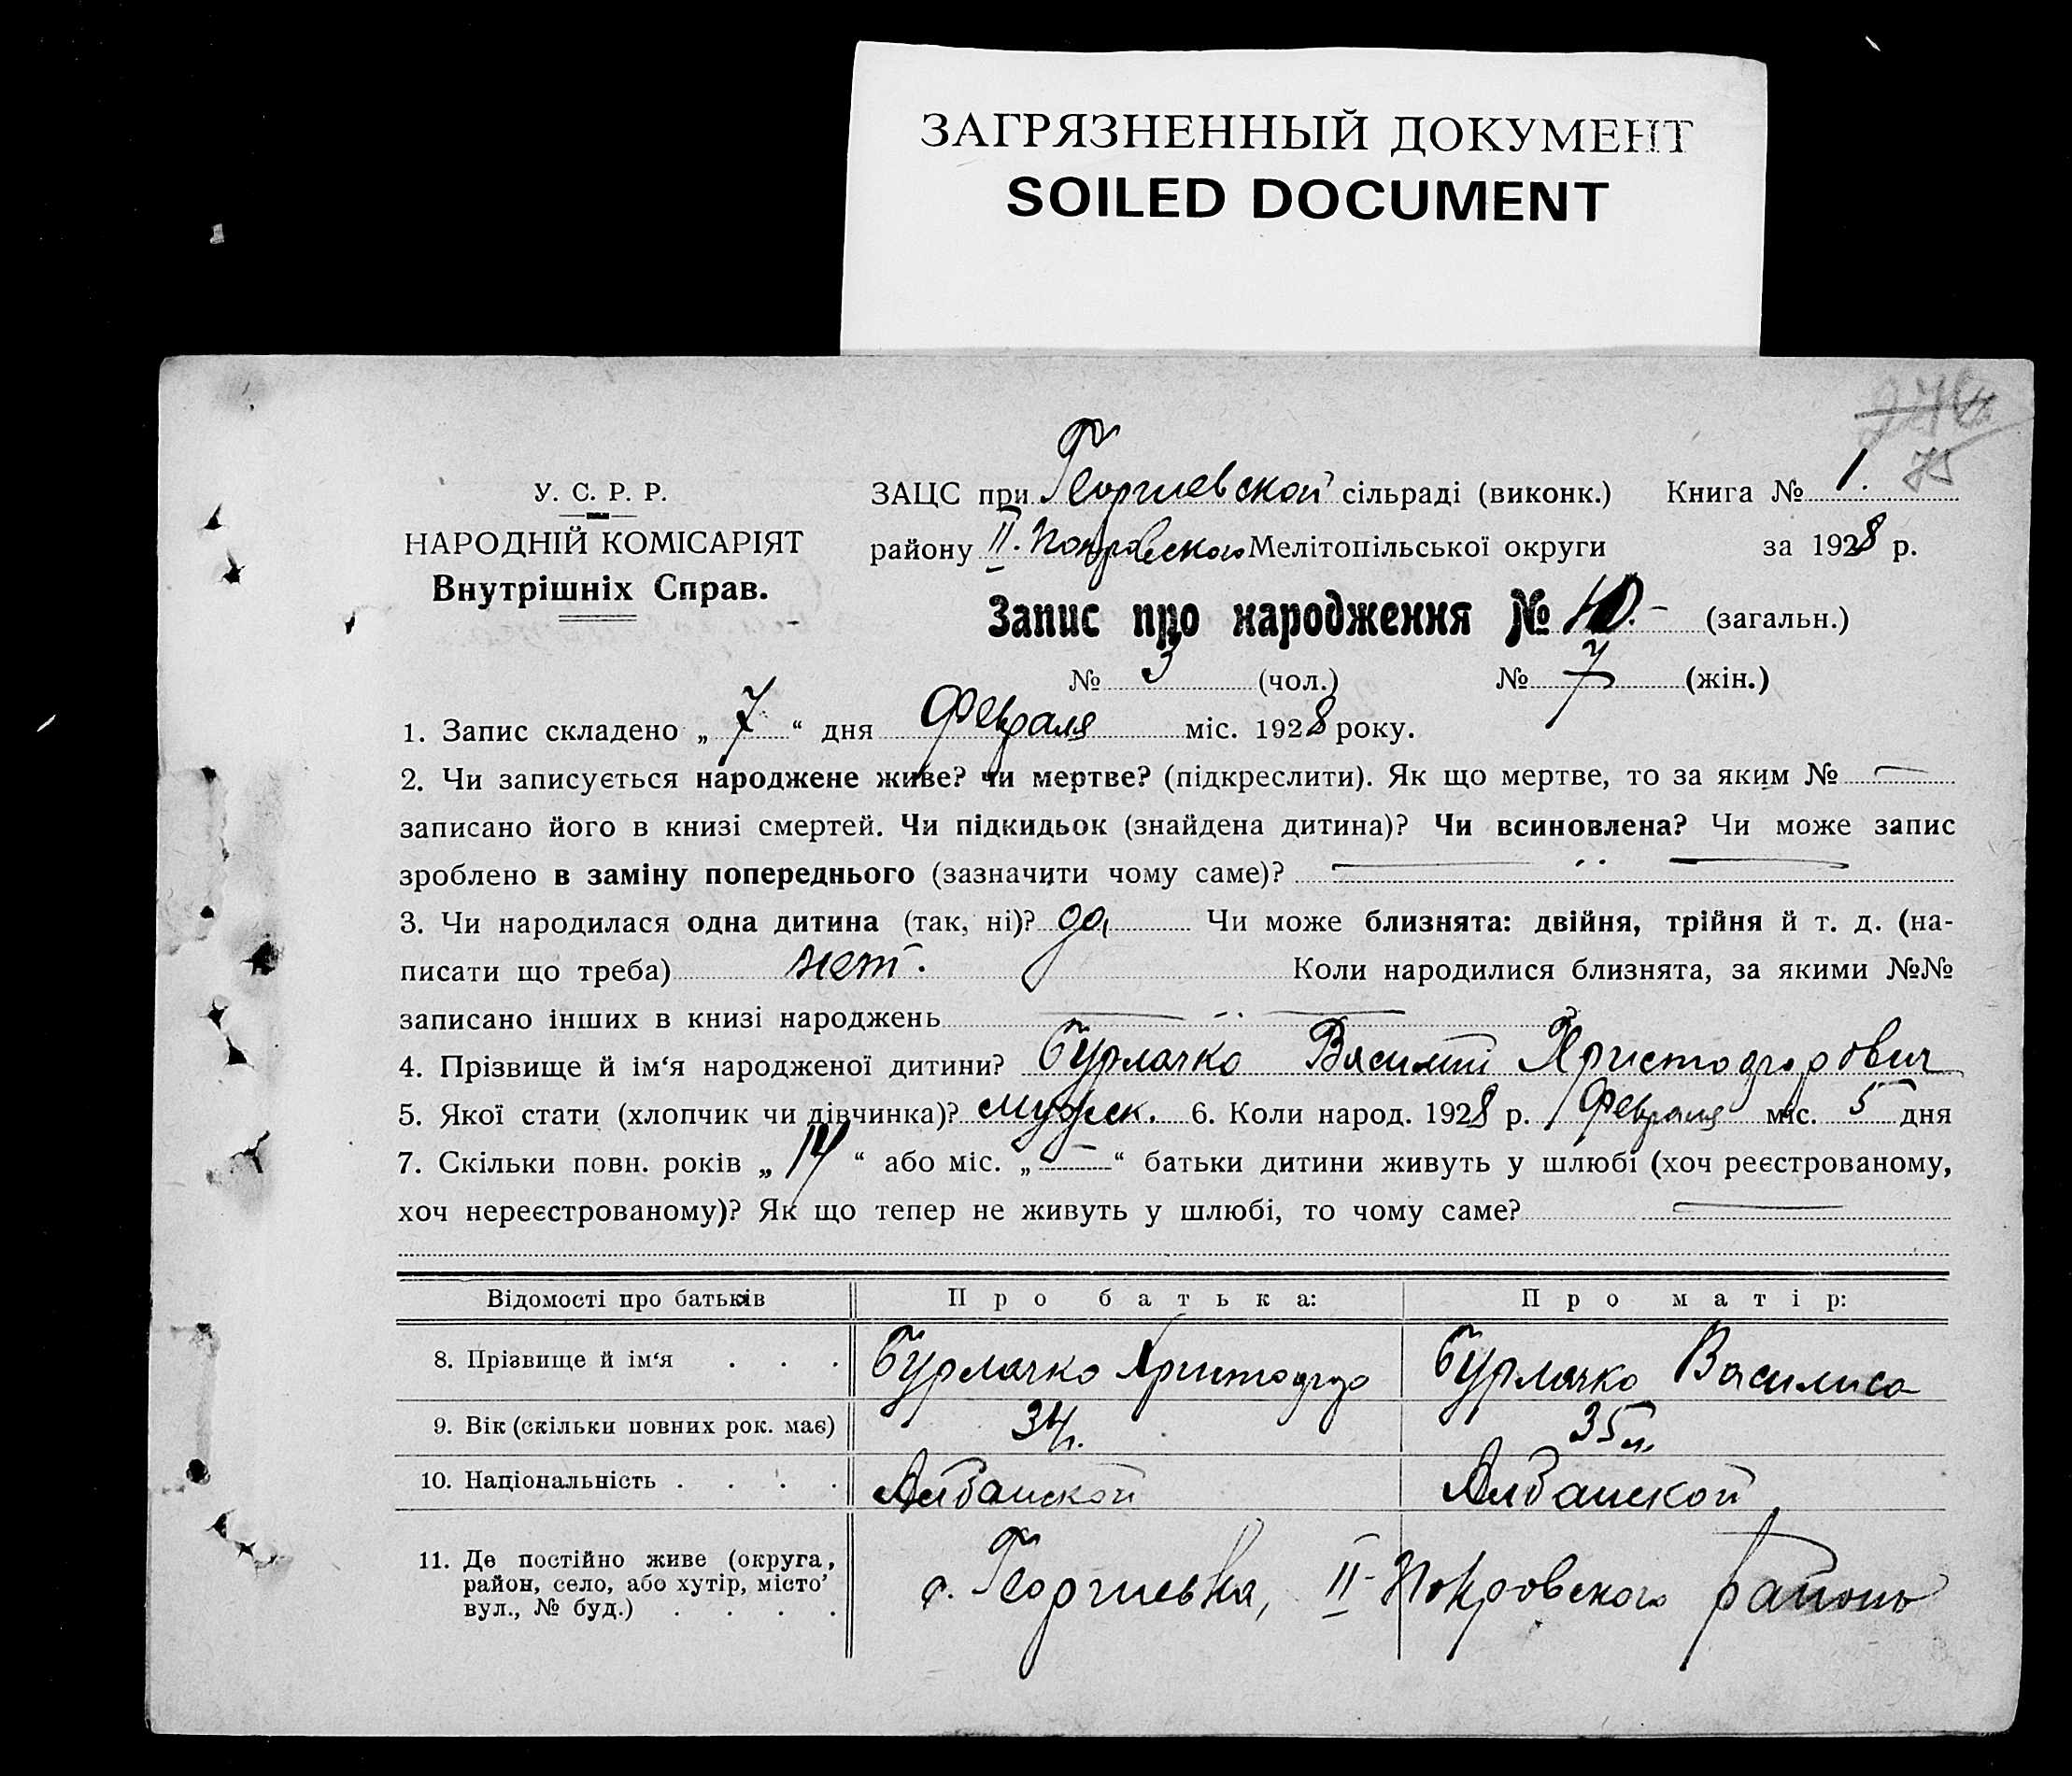 ЗАГРЯЗНЕННЫЙ ДОКУМЕНТ
SOILED DOCUMENT
75
У. С. Р. Р.
НАРОДНІЙ КОМІСАРІЯТ
Внутрішніх Справ.
ЗАЦС при Георгиевской сільраді (виконк.) Книга № 1.
району II. Покровского Мелітопільської округи за 1928 р.
Запис про народження № 10.- (загальн.)
№ 3 (чол.) № 7 (жін.)
1. Запис складено „ 7 “ дня Февраля міс. 1928 року.
2. Чи записується народжене живе? чи мертве? (підкреслити). Як що мертве, то за яким № —
записано його в книзі смертей. Чи підкидьок (знайдена дитина)? Чи всиновлена? Чи може запис
зроблено в заміну попереднього (зазначити чому саме)? — „ —
3. Чи народилася одна дитина (так, ні)? да Чи може близнята: двійня, трійня й т. д. (на-
писати що треба) нет. Коли народилися близнята, за якими №№
записано інших в книзі народжень — „ —
4. Прізвище й ім‘я народженої дитини? Бурлачко Василий Христофорович
5. Якої стати (хлопчик чи дівчинка)? мужск. 6. Коли народ. 1928 р. Февраля міс. 5 дня
7. Скільки повн. років „ 14 “ або міс. „ — “ батьки дитини живуть у шлюбі (хоч реєстрованому,
хоч нереєстрованому)? Як що тепер не живуть у шлюбі, то чому саме? —
Відомості про батьків Про батька: Про матір:
8. Прізвище й ім‘я . . . Бурлачко Христофор Бурлачко Василиса
9. Вік (скільки повних рок. має) 34 л. 35 л.
10. Національність . . . . Албанской Албанской
11. Де постійно живе (округа,
район, село, або хутір, місто’
вул., № буд.) . . . .
с. Георгиевка, II-Покровского района